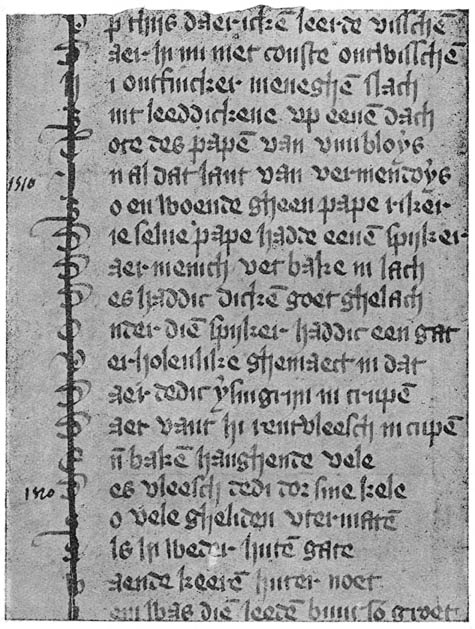 p thijs daer ickē leerde visschē
aer hi mi niet conste ontwisschē
i ontfincker meneghē slach
int leeddickene vp eenē dach
ote des papē van vimbloys
n al dat lant van vermendoys
o en woende gheen pape riker
ie selue pape hadde eenē spijker
aer menich vet bake in lach
es haddic dickē goet ghelach
nder diē spijker haddic een gat
erholenlike ghemaect in dat
aer dedic ysingrijn in crupē
aer vant hi rentvleesch in cupē
ñ bakē hanghende vele
es vleesch dedi dor sine kele
o vele gheliden vtermatē
ls hi weder hutē gate
aende keerē huter noet
em was diē leedē buuc so groet
1510
1520